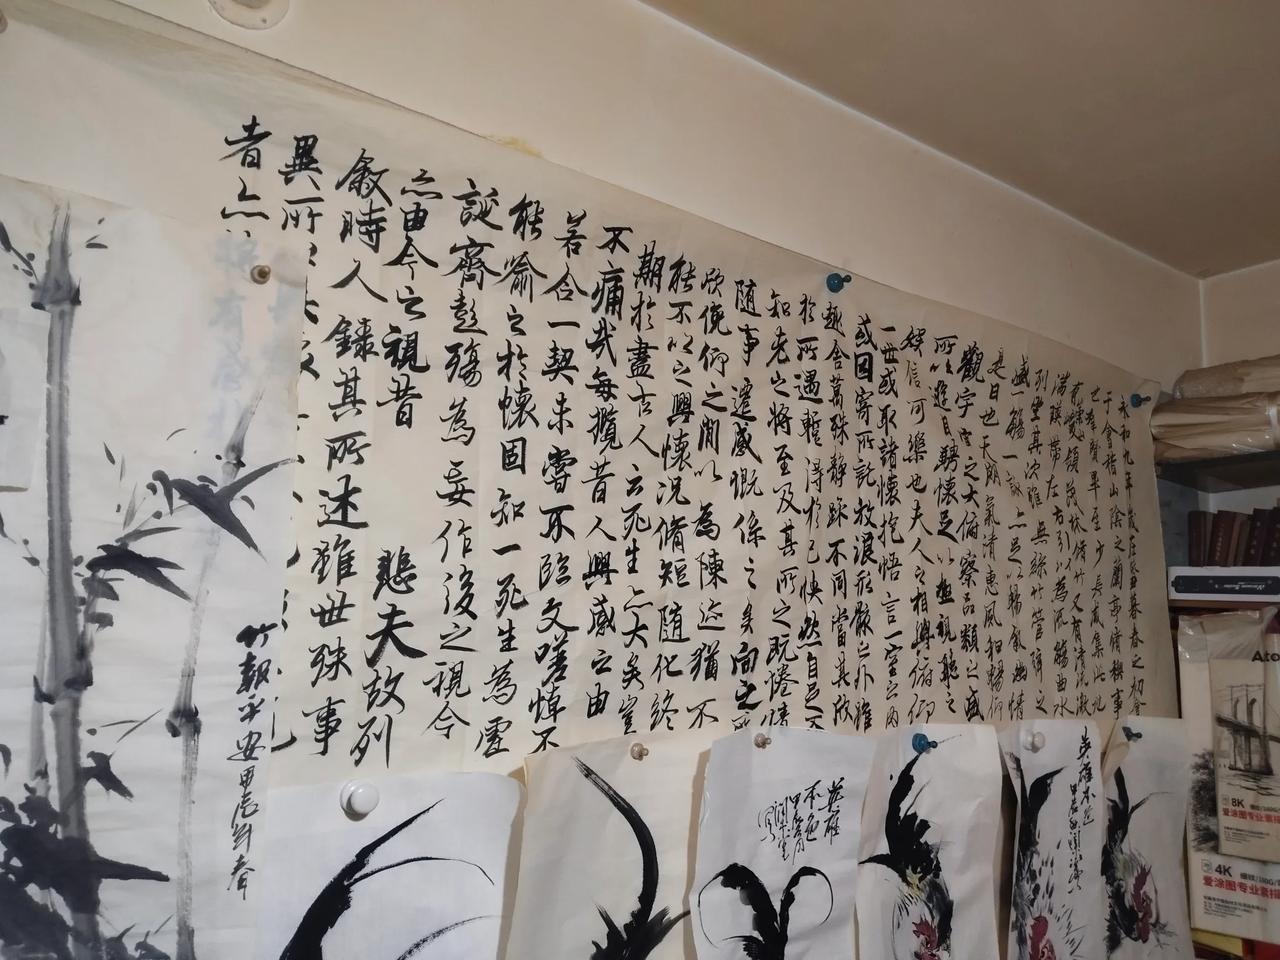 永和九年歲在癸丑暮春之初會
于會稽山陰之蘭亭脩稧事
也羣賢畢至少長咸集此地
有崇山峻領茂林脩竹又有清流激
湍暎帶左右引以為流觴曲水
列坐其次雖無絲竹管弦之
盛一觴一詠亦足以暢敘幽情
是日也天朗氣清惠風和暢仰
觀宇宙之大俯察品類之盛
所以遊目騁懷足以極視聽之
娛信可樂也夫人之相與俯仰
一世或取諸懷抱悟言一室之內
或因寄所託放浪形骸之外雖
趣舍萬殊靜躁不同當其欣
於所遇蹔得於己快然自足不
知老之將至及其所之既惓情
隨事遷感慨係之矣向之所
欣俛仰之閒以為陳迹猶不
能不以之興懷況脩短隨化終
期於盡古人云死生亦大矣豈
不痛哉每攬昔人興感之由
若合一契未嘗不臨文嗟悼不
能喻之於懷固知一死生為虛
誕齊彭殤為妄作後之視今
亦由今之視昔
悲夫故列
敘時人錄其所述雖世殊事
異所
者亦
竹報平安甲辰年春
英雄
本色
英雄本色
8K
爱涂图专业素描
4K
爱涂图专业素描